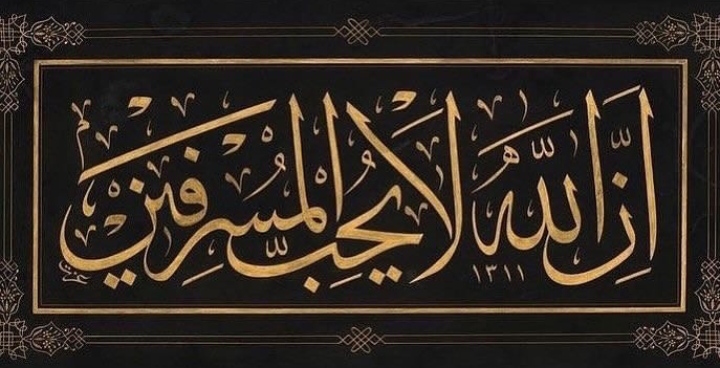 ان الله لا يحب المسرفين
١٣١١